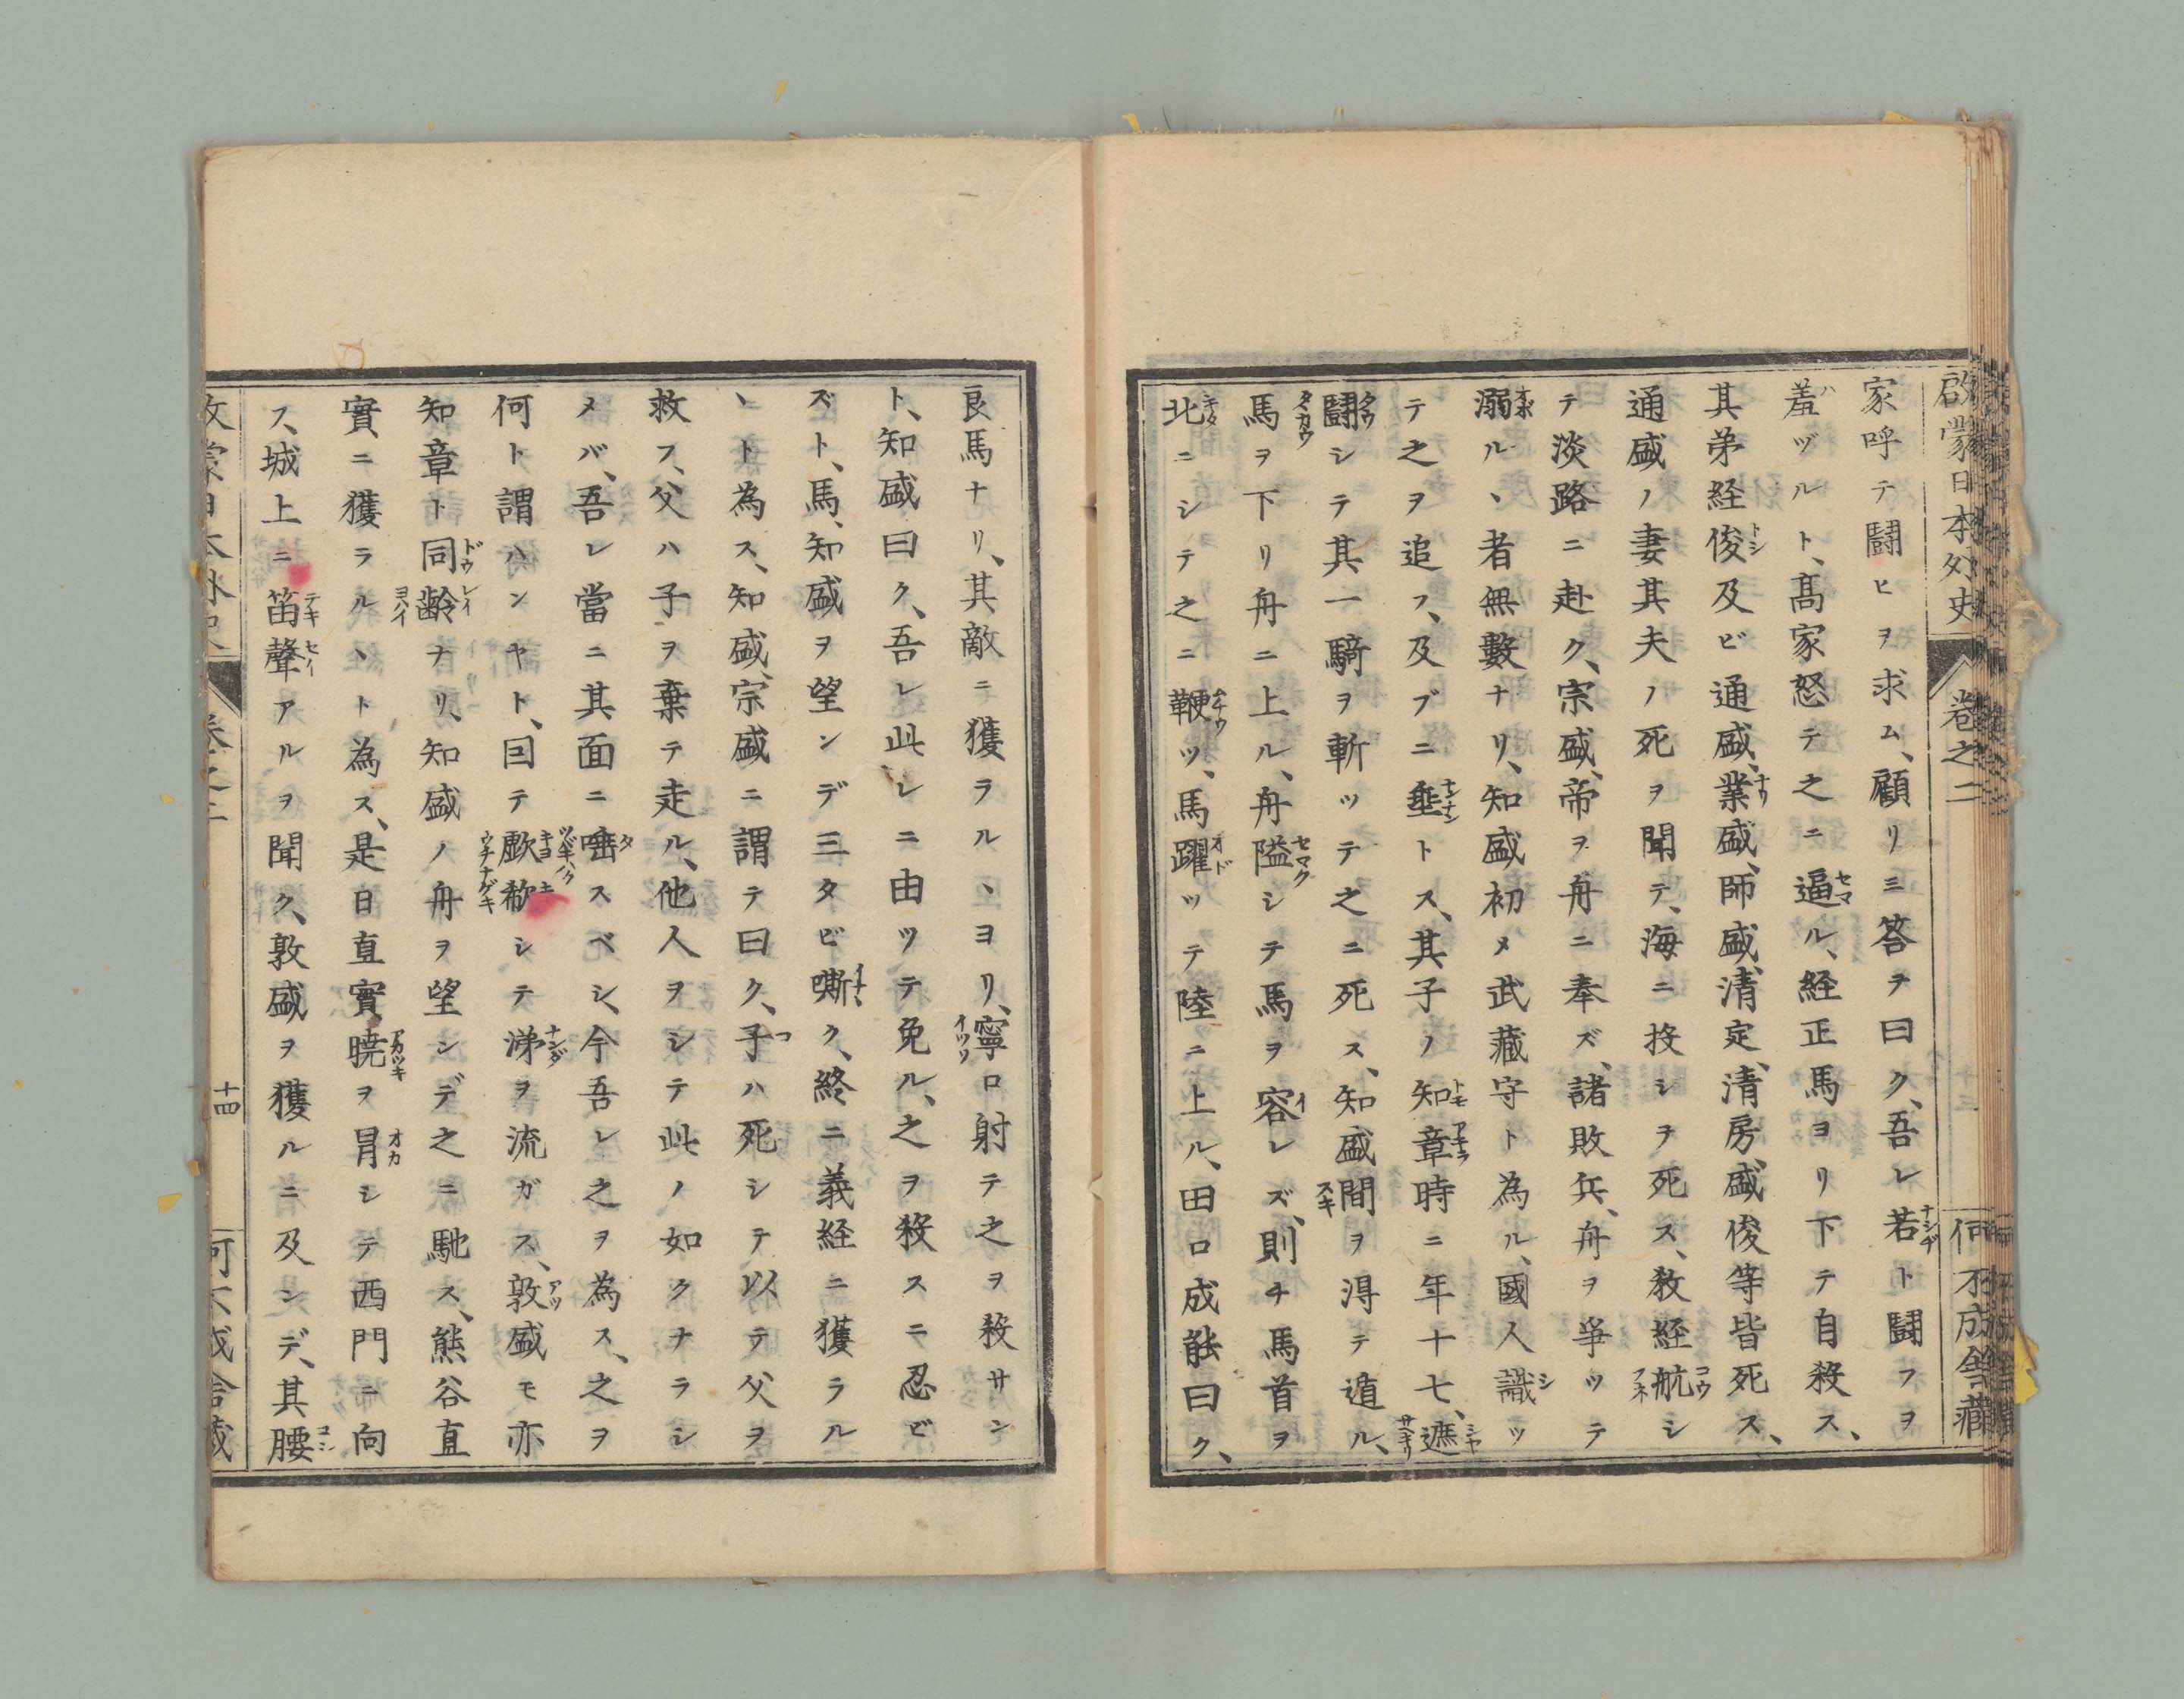 啟蒙日本外史 卷之二 何不成舎藏
家呼テ鬪ヒヲ求ム、顧リミ答ヲ曰ク、吾レ若ト鬪フヲ
羞ヅルト、髙家怒テ之ニ逼ル、経正馬ヨリ下テ自殺ス、
其弟経俊及ビ通盛、業盛、師盛、清定、清房、盛俊等皆死ス、
通盛ノ妻其夫ノ死ヲ聞テ、海ニ投シヲ死ス、敎経航シ
テ淡路ニ赴ク、宗盛、帝ヲ舟ニ奉ズ、諸敗兵、舟ヲ爭ツテ
溺ルヽ者無數ナリ、知盛初メ武藏守ト為ル、國人識ツ
テ之ヲ追フ、及ブニ埀トス、其子ノ知章時ニ年十七、遮
鬪シテ其一騎ヲ斬ツテ之ニ死ス、知盛間ヲ淂テ遁ル、
馬ヲ下リ舟ニ上ル、舟隘シテ馬ヲ容レズ、則チ馬首ヲ
北ニシテ之ニ鞭ツ、馬躍ツテ陸ニ上ル、田口成䏻曰ク、
良馬ナリ、其敵ニ獲ラルヽヨリ、寧ロ射テ之ヲ殺サン
ト、知盛曰ク、吾レ此レニ由ツテ免ル、之ヲ殺スニ忍ビ
ズト、馬、知盛ヲ望ンデ三タビ嘶ク、終ニ義経ニ獲ラル
ヽト為ス、知盛、宗盛ニ謂テ曰ク、子ハ死シテ、以テ父ヲ
救フ、父ハ子ヲ棄テ走ル、他人ヲシテ此ノ如クナラシ
メバ、吾レ當ニ其面ニ唾スベシ、今吾レ之ヲ為ス、之ヲ
何ト謂ハンヤト、因テ歔欷シテ涕ヲ流ガス、敦盛モ亦
知章ト同齢ナリ、知盛ノ舟ヲ望ンデ之ニ馳ス、熊谷直
實ニ獲ラルヽト為ス、是日直實、暁ヲ冒シテ西門ニ向
ス、城上ニ笛聲アルヲ聞ク、敦盛ヲ獲ルニ及ンデ、其腰
十四